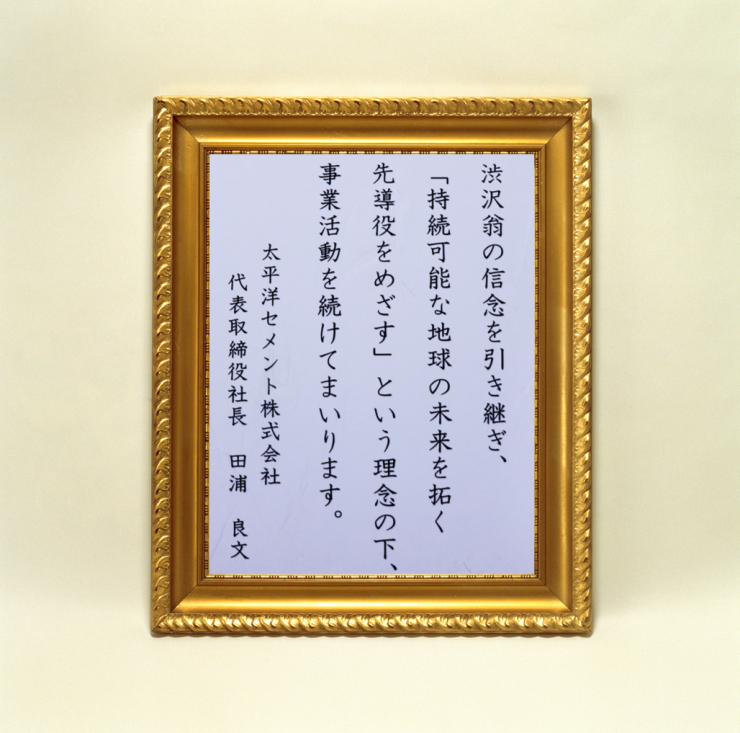 渋沢翁の信念を引き継ぎ、
「持続可能な地球の未来を拓く
先導役をめざす」という理念の下、
事業活動を続けてまいります。
太平洋セメント株式会社
代表取締役社長 田浦 良文